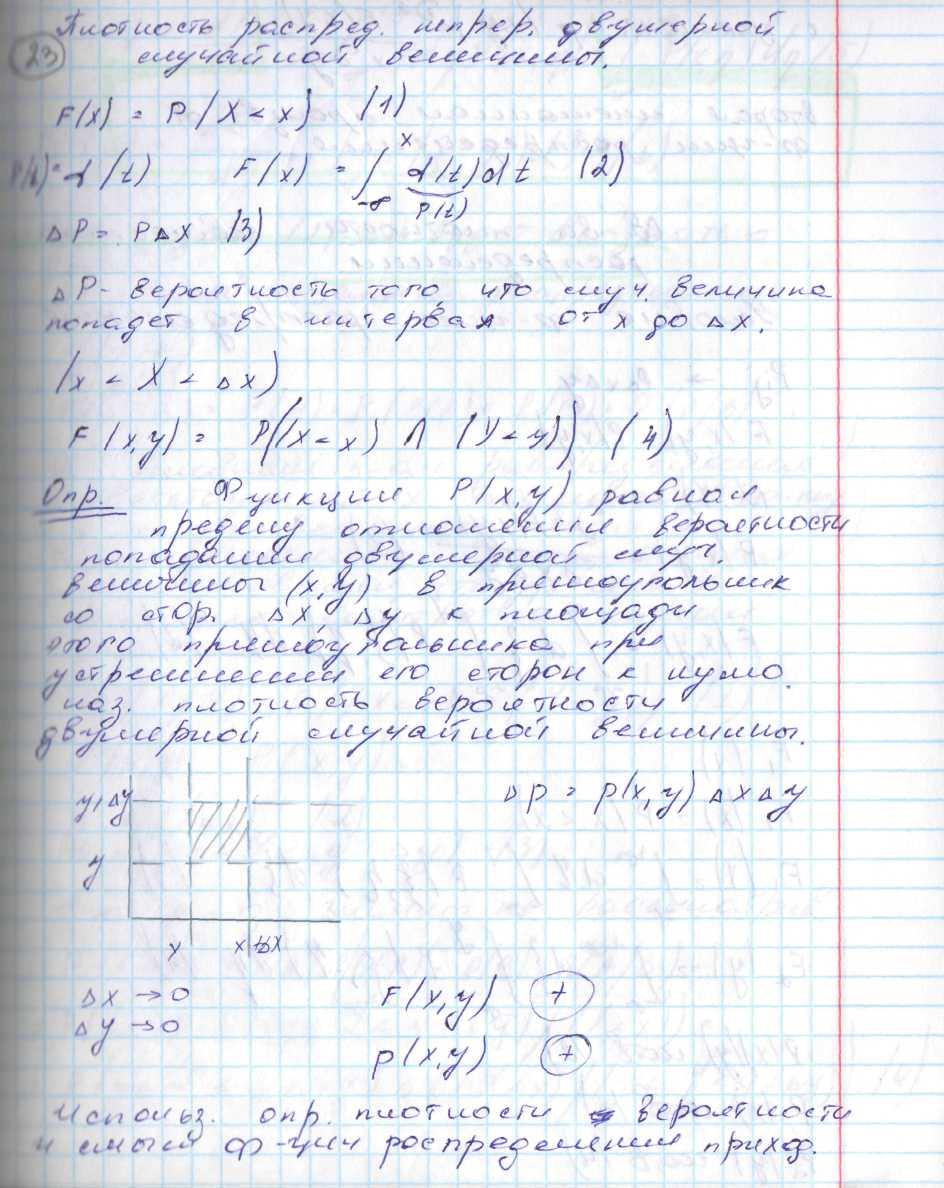 23
Плотность распред. непрер. двумерной
случайной величины.
F(x) = P(X < x) (1)
P(t) = α(t) F(x) = ∫_{-∞}^{x} α(t)dt (2)
P(t)
ΔP = PΔX (3)
ΔP - вероятность того, что случ. величина
попадет в интервал от x до Δx.
(x < X < Δx)
F(x,y) = P((X < x) ∩ (Y < y)) (4)
Опр. Функция P(x,y) равная
пределу отношения вероятности
попадания двумерной случ.
величины (x,y) в прямоугольник
со стор. Δx, Δy к площади
этого прямоугольника при
устремлении его сторон к нулю.
наз. плотность вероятности
двумерной случайной величины.
y+Δy
Δp = p(x,y) Δx Δy
y
x x+Δx
Δx → 0 F(x,y) +
Δy → 0
p(x,y) +
Использ. опр. плотности вероятности
и смысл ф-ции роспределения приход.